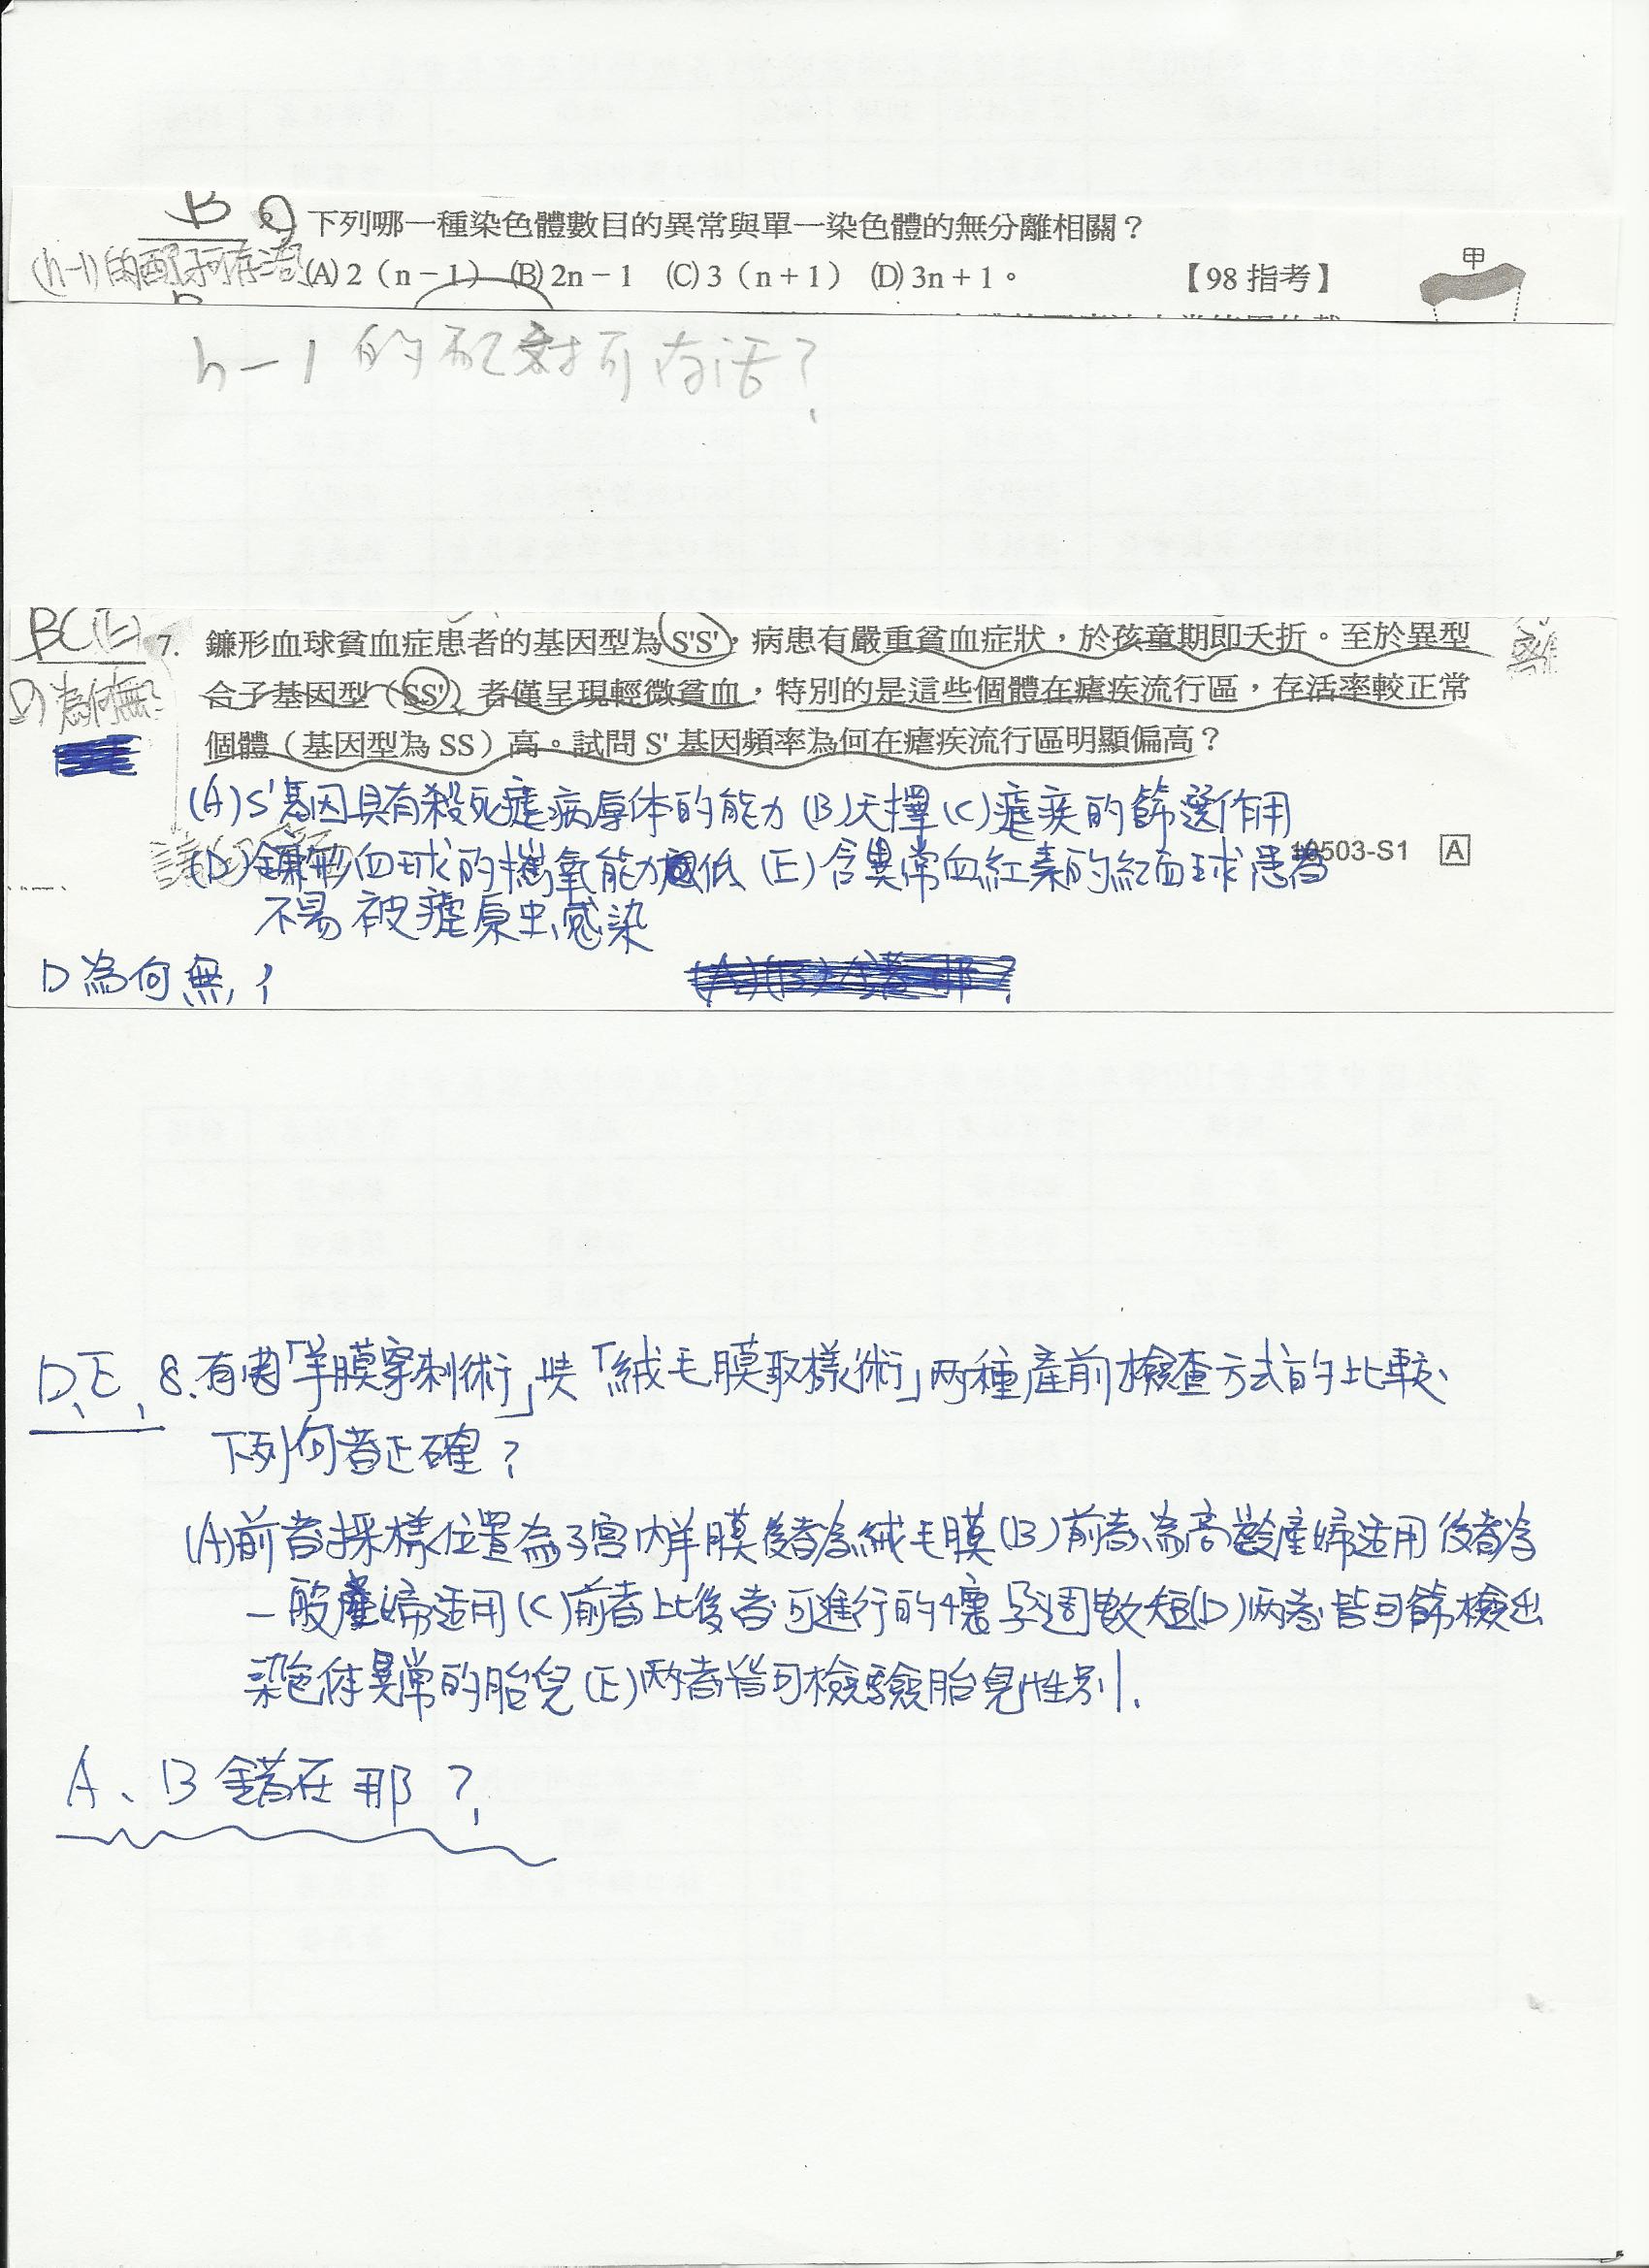 B 9 下列哪一種染色體數目的異常與單一染色體的無分離相關？
(n-1)的配子可存活 (A) 2（n－1） (B) 2n－1 (C) 3（n＋1） (D) 3n＋1。 【98 指考】 甲
n-1 的配對可存活？
BC(E) 7. 鐮形血球貧血症患者的基因型為 S'S'，病患有嚴重貧血症狀，於孩童期即夭折。至於異型
D)為何無? 合子基因型（SS'）者僅呈現輕微貧血，特別的是這些個體在瘧疾流行區，存活率較正常
個體（基因型為 SS）高。試問 S' 基因頻率為何在瘧疾流行區明顯偏高？
(A)S'基因具有殺死瘧病原体的能力 (B)天擇 (C)瘧疾的篩選作用
(D)鐮形血球的攜氧能力低 (E)含異常血紅素的紅血球患者 10503-S1 A
不易被瘧原虫感染
D為何無？
D、E、 8.有關「羊膜穿刺術」與「絨毛膜取樣術」两種產前檢查方式的比較、
下列何者正確？
(A)前者採樣位置為子宮內羊膜後者為絨毛膜(B)前者為高齡產婦适用後者為
一般產婦适用(C)前者比後者可進行的懷孕週數短(D)两者皆可篩檢出
染色体異常的胎兒(E)两者皆可檢驗胎兒性别.
A、B 錯在那？